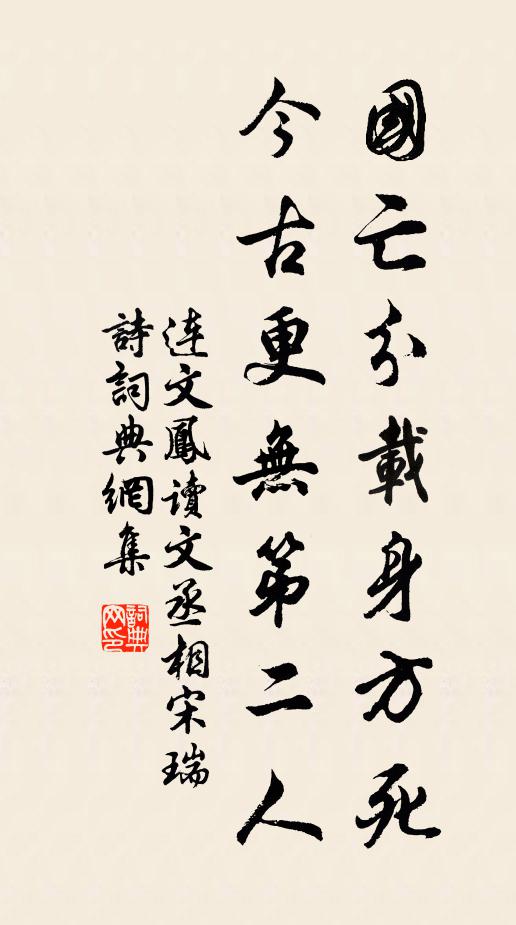 國亡分載身方死
今古更無第二人
連文鳳讀文丞相宋瑞
詩詞典網集
詞典网印